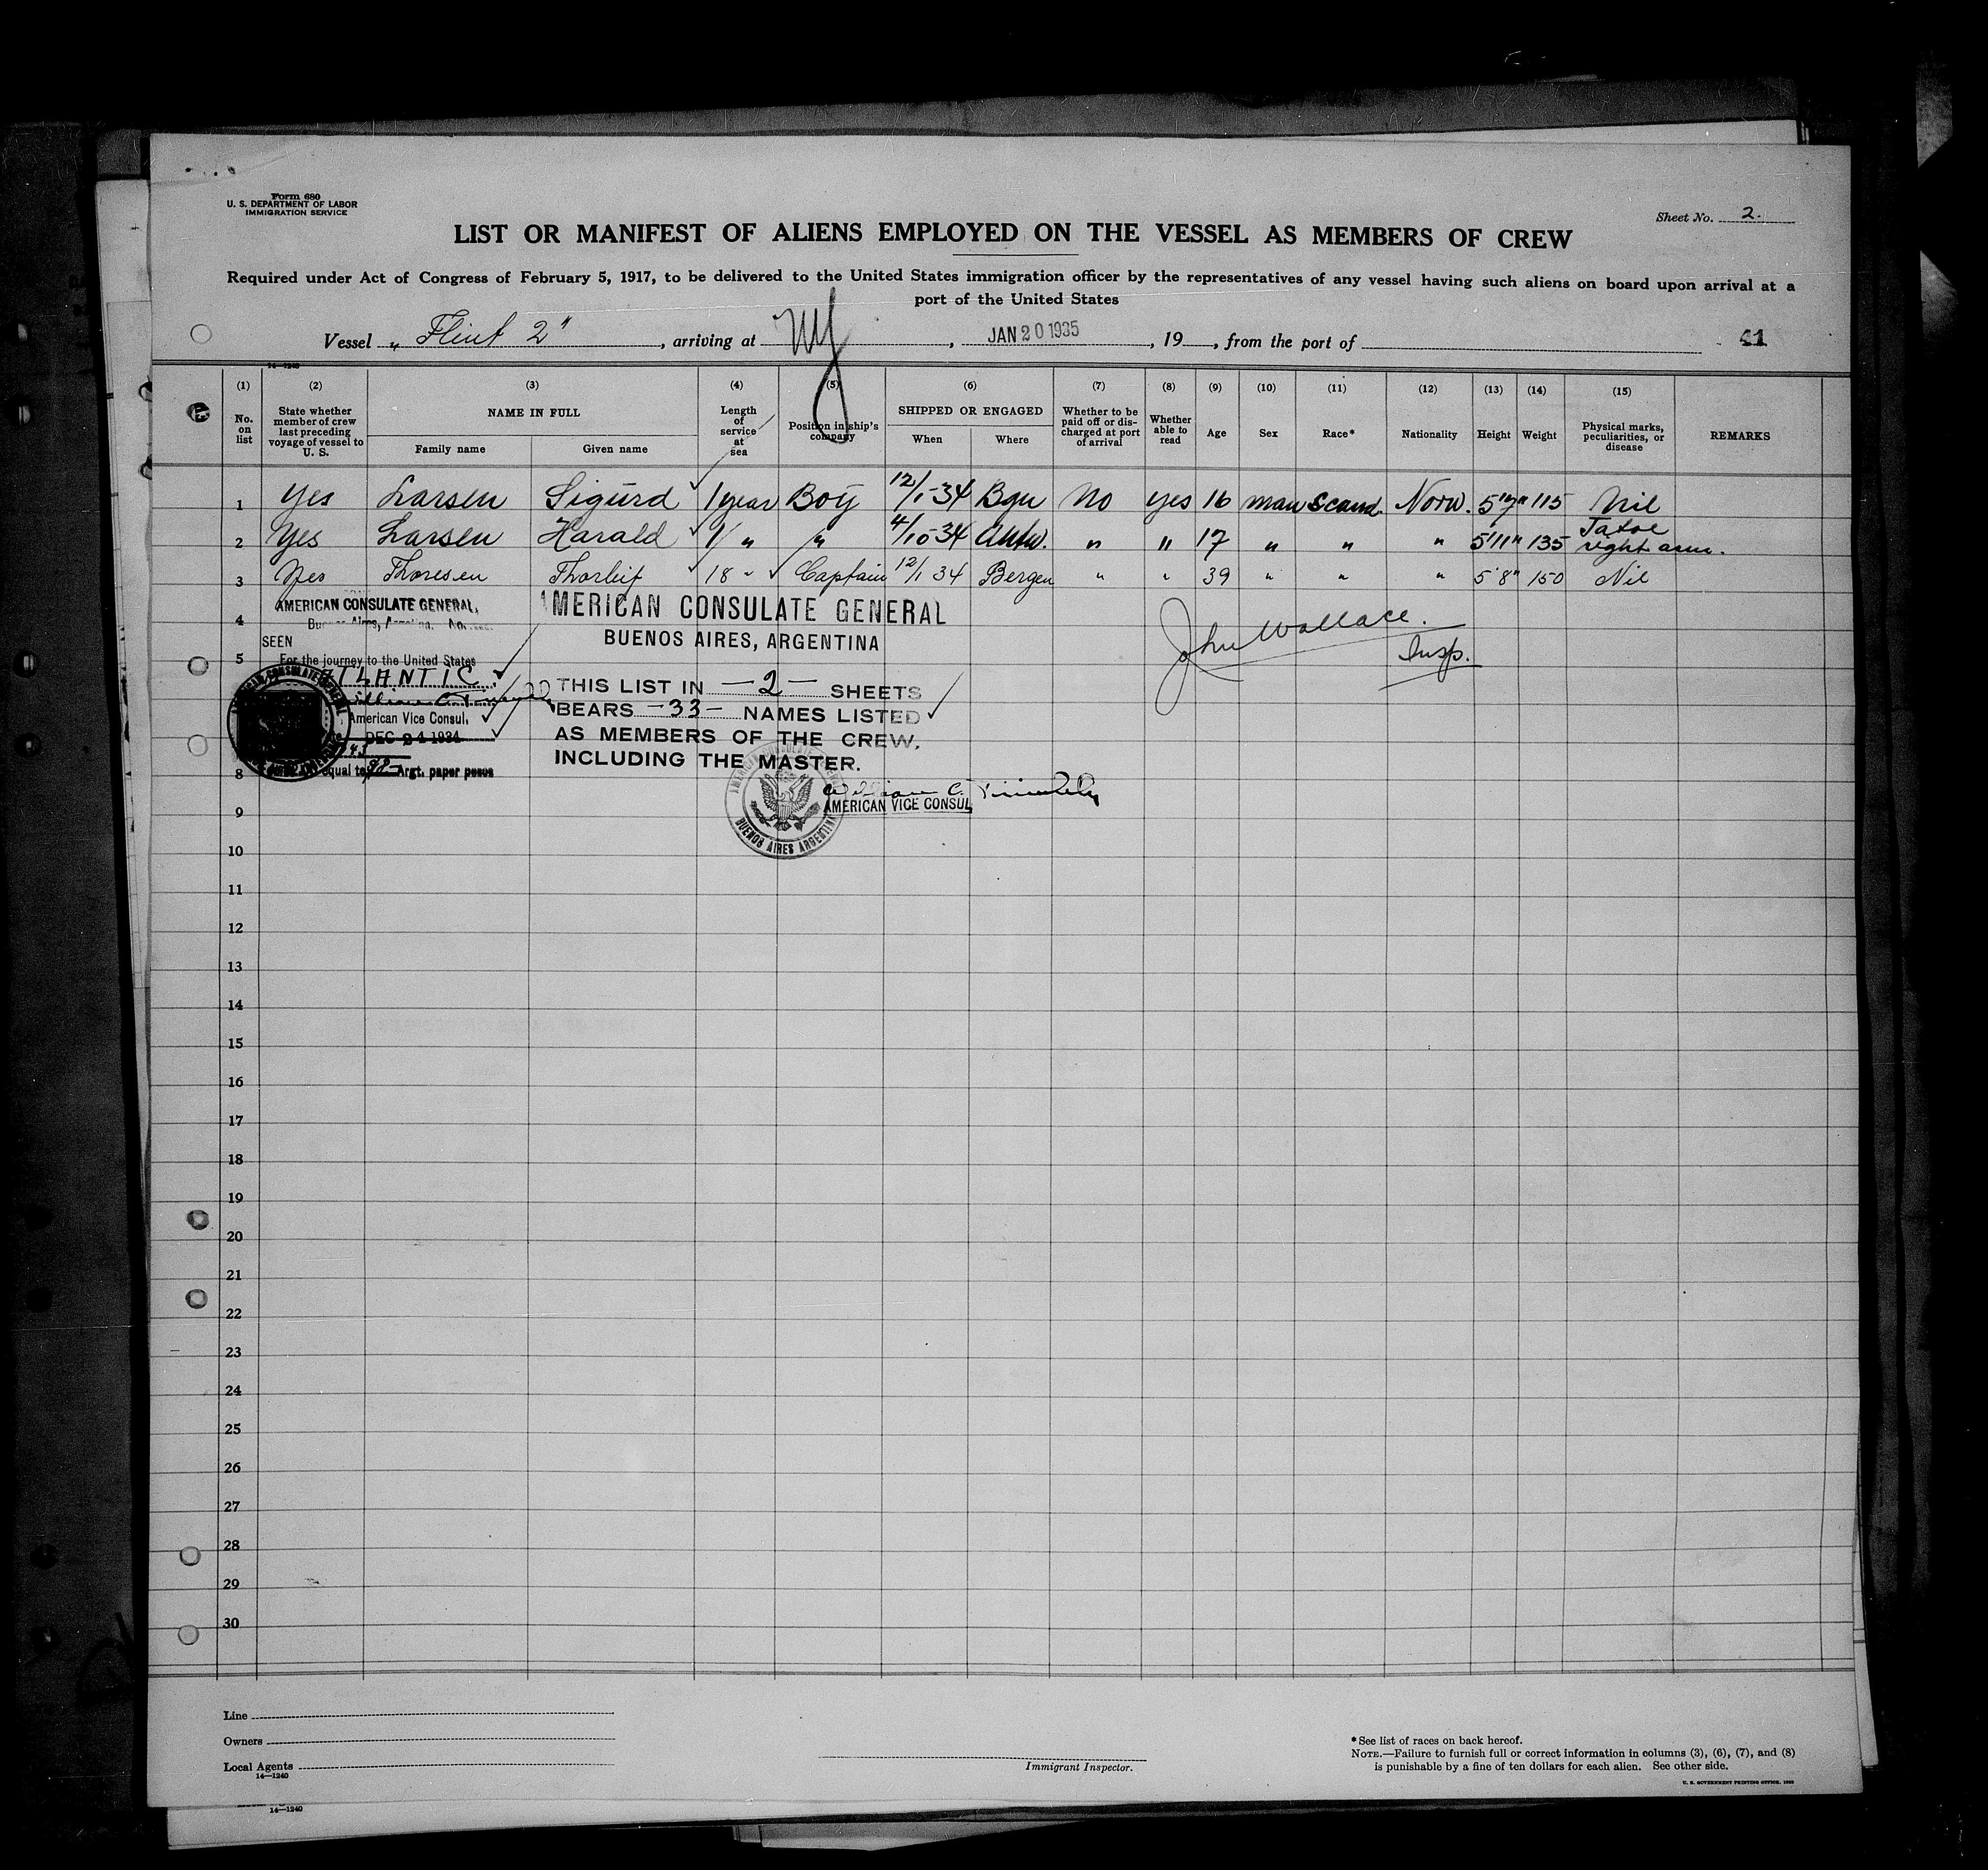 Form 680
U. S. DEPARTMENT OF LABOR
IMMIGRATION SERVICE
Sheet No. 2.
LIST OR MANIFEST OF ALIENS EMPLOYED ON THE VESSEL AS MEMBERS OF CREW
Required under Act of Congress of February 5, 1917, to be delivered to the United States immigration officer by the representatives of any vessel having such aliens on board upon arrival at a
port of the United States
Vessel „ Flint 2", arriving at NY, JAN 20 1935, 19__, from the port of
41
14—1240
(1) (2) (3) (4) (5) (6) (7) (8) (9) (10) (11) (12) (13) (14) (15)
No. on list
State whether member of crew last preceding voyage of vessel to U. S.
NAME IN FULL
Family name
Given name
Length of service at sea
Position in ship's company
SHIPPED OR ENGAGED
When
Where
Whether to be paid off or discharged at port of arrival
Whether able to read
Age
Sex
Race*
Nationality
Height
Weight
Physical marks, peculiarities, or disease
REMARKS
1 Yes Larsen Sigurd 1 year Boy 12/1-34 Bgn No yes 16 man Scand. Norw. 5'7" 115 Nil
2 Yes Larsen Harald 1 " " 4/10-34 Antw. " " 17 " " " 5'11" 135 Tatoe right arm.
3 Yes Thoresen Thorleif 18 " Captain 12/1 34 Bergen " " 39 " " " 5'8" 150 Nil
4
5
8
9
10
11
12
13
14
15
16
17
18
19
20
21
22
23
24
25
26
27
28
29
30
AMERICAN CONSULATE GENERAL,
Buenos Aires, Argentina.
SEEN
For the journey to the United States
ATLANTIC
American Vice Consul.
DEC 24 1934
equal to Argt. paper pesos
AMERICAN CONSULATE GENERAL
BUENOS AIRES, ARGENTINA
THIS LIST IN —2— SHEETS
BEARS —33— NAMES LISTED
AS MEMBERS OF THE CREW,
INCLUDING THE MASTER.
William C.
AMERICAN VICE CONSUL
BUENOS AIRES ARGENTINA
John Wallace.
Insp.
Line
Owners
Local Agents
14—1240
Immigrant Inspector.
*See list of races on back hereof.
NOTE.—Failure to furnish full or correct information in columns (3), (6), (7), and (8)
is punishable by a fine of ten dollars for each alien. See other side.
U. S. GOVERNMENT PRINTING OFFICE.
14—1240